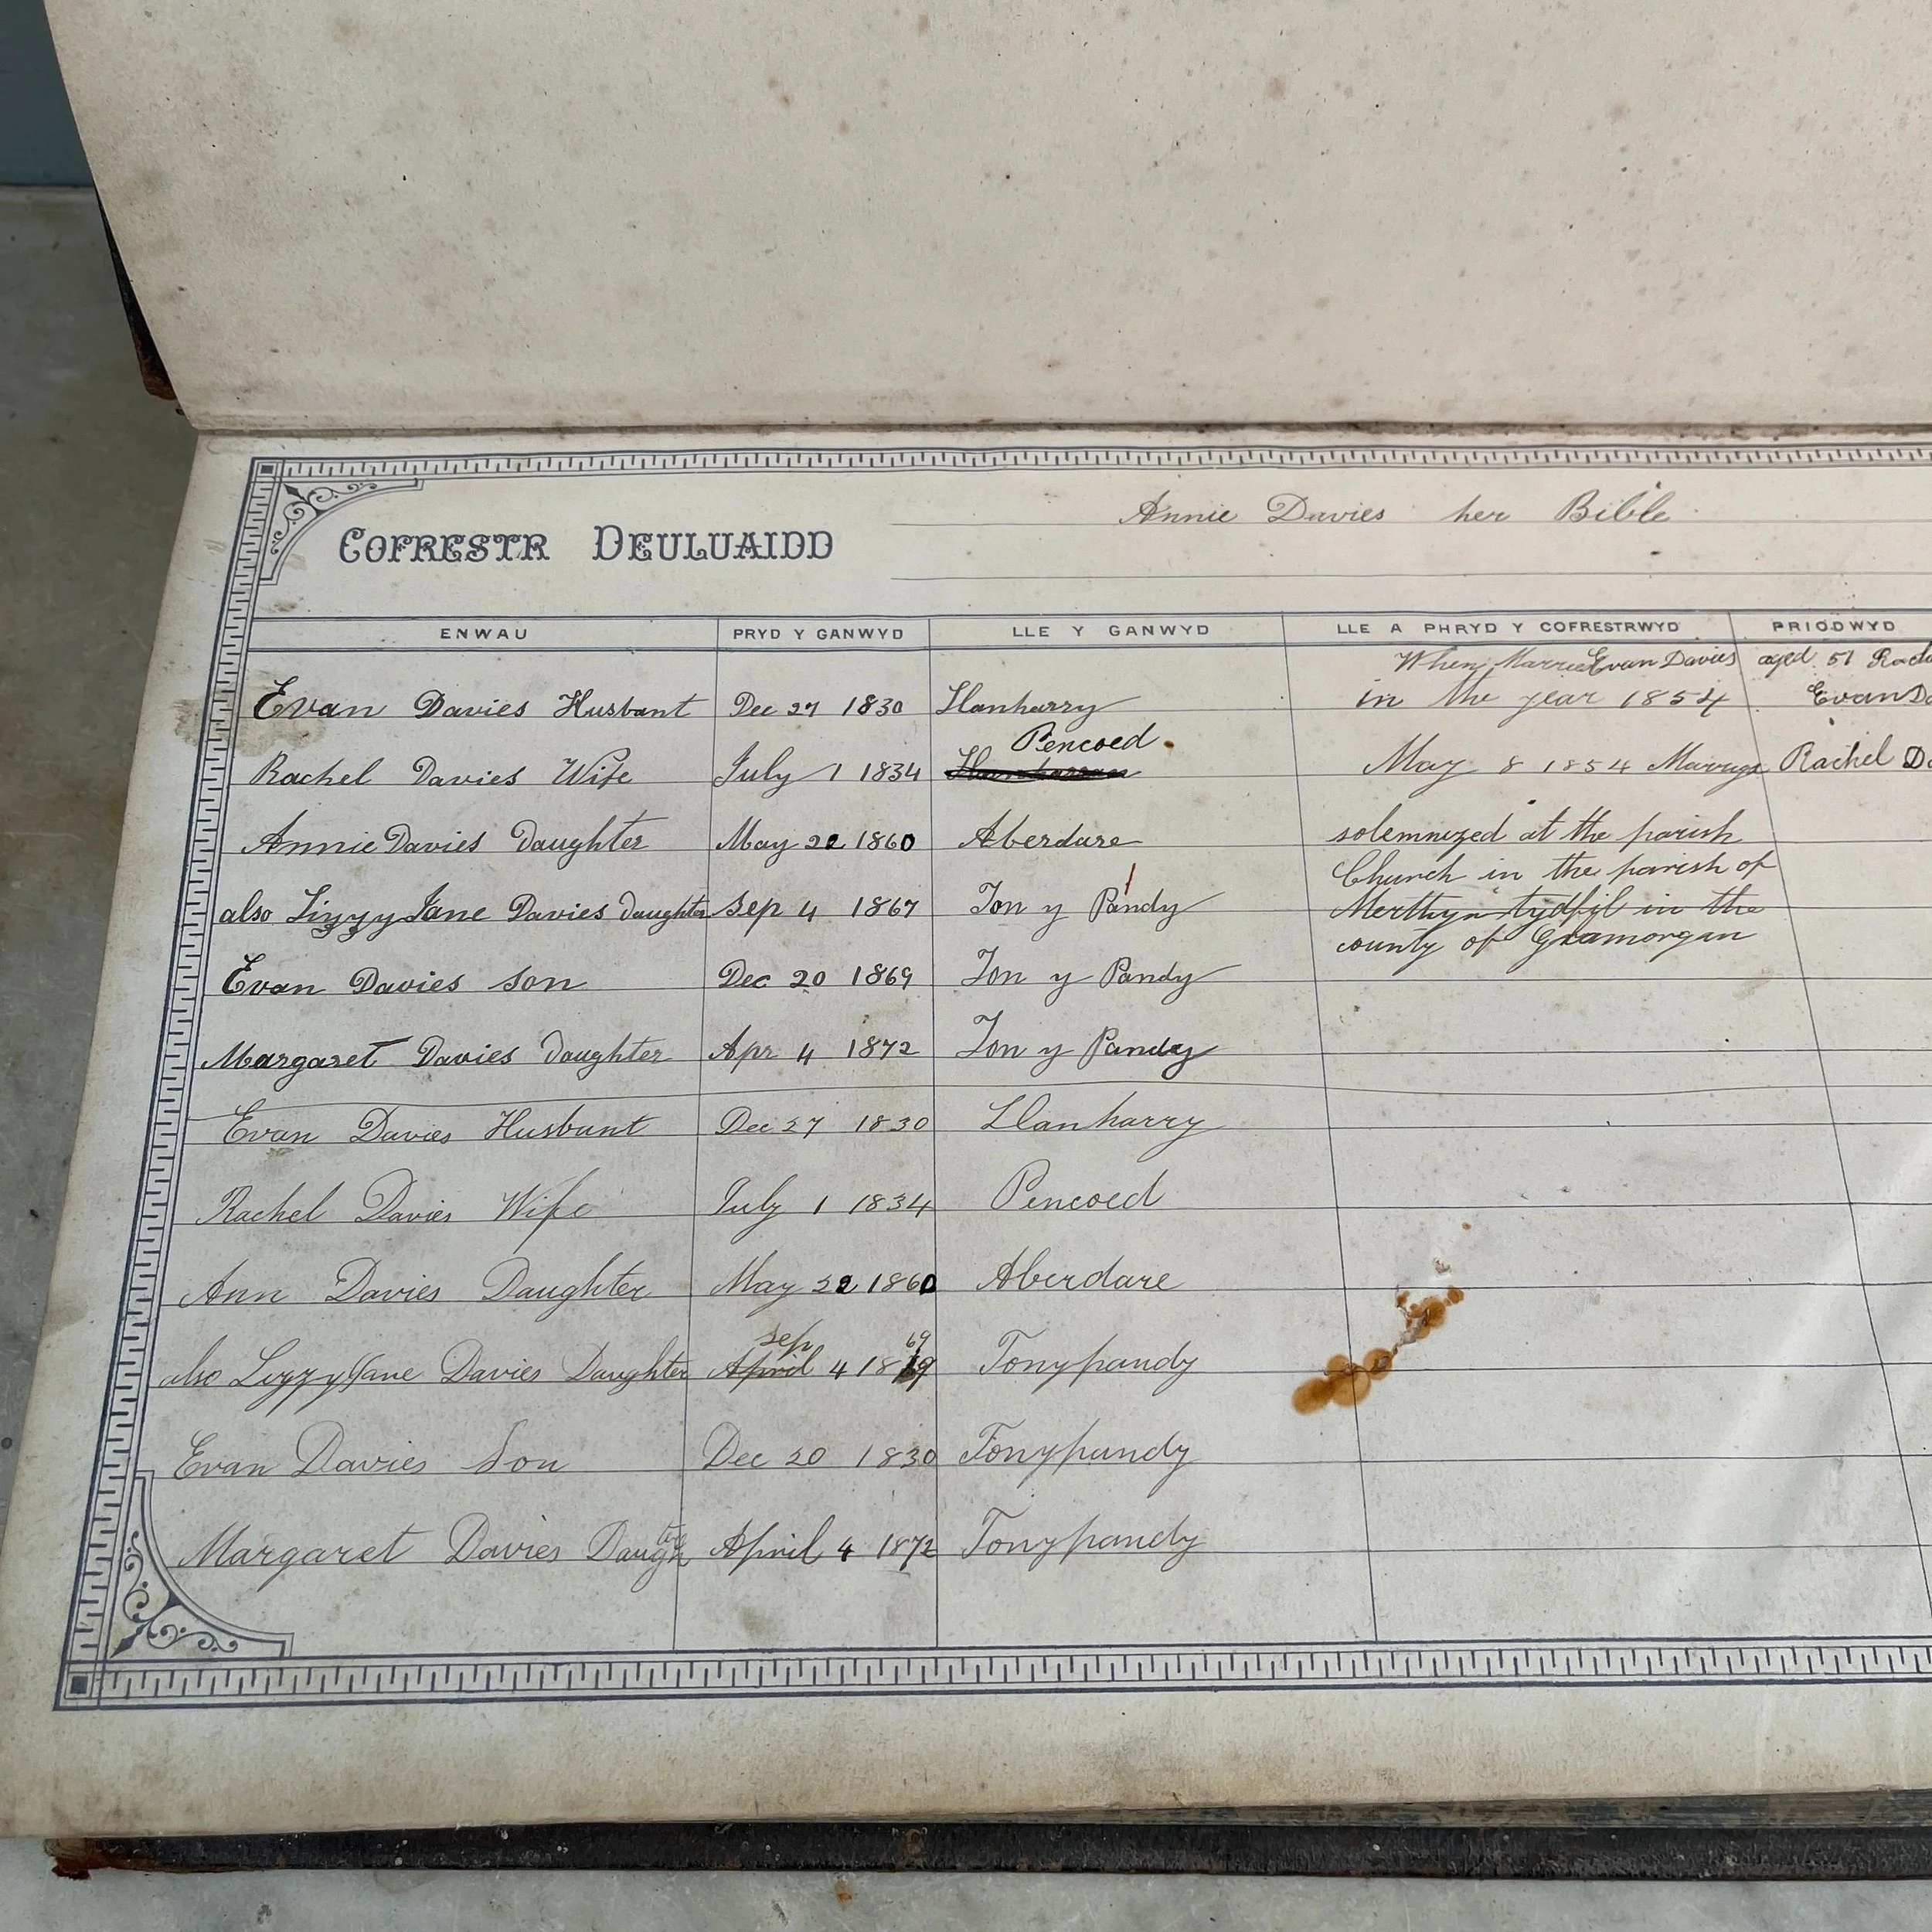 Annie Davies her Bible
COFRESTR DEULUAIDD
ENWAU PRYD Y GANWYD LLE Y GANWYD LLE A PHRYD Y COFRESTRWYD PRIODWYD
When Married Evan Davies aged 51
Evan Davies Husbant Dec 27 1830 Llanharry in the year 1854 Evan
Pencoed
Rachel Davies Wife July 1 1834 May 8 1854 Rachel
Annie Davies Daughter May 22 1860 Aberdare solemnized at the parish
Church in the parish of
also Lizzy Jane Davies Daughter Sep 4 1867 Ton y Pandy Merthyr tydfyl in the
county of Glamorgan
Evan Davies son Dec 20 1869 Ton y Pandy
Margaret Davies Daughter Apr 4 1872 Ton y Pandy
Evan Davies Husbant Dec 27 1830 Llanharry
Rachel Davies Wife July 1 1834 Pencoed
Ann Davies Daughter May 22 1860 Aberdare
sep 69
also Lizzy Jane Davies Daughter April 4 Tonypandy
Evan Davies Son Dec 20 1830 Tonypandy
Margaret Davies Daughter April 4 1872 Tonypandy